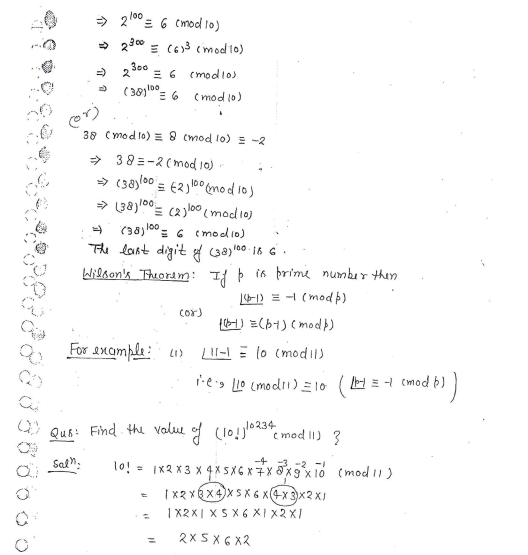 ⇒ 2^100 ≡ 6 (mod 10)
⇒ 2^300 ≡ (6)^3 (mod 10)
⇒ 2^300 ≡ 6 (mod 10)
⇒ (38)^100 ≡ 6 (mod 10)
(or)
38 (mod 10) ≡ 8 (mod 10) ≡ -2
⇒ 38 ≡ -2 (mod 10)
⇒ (38)^100 ≡ (-2)^100 (mod 10)
⇒ (38)^100 ≡ (2)^100 (mod 10)
⇒ (38)^100 ≡ 6 (mod 10)
The last digit of (38)^100 is 6.
Wilson's Theorem: If p is prime number then
|(p-1) ≡ -1 (mod p)
(or)
|(p-1) ≡ (p-1) (mod p)
For example: (1) |11-1 ≡ 10 (mod 11)
i.e., |10 (mod 11) ≡ 10 (|p-1 ≡ -1 (mod p))
Qus: Find the value of (10!)^10234 (mod 11) ?
Soln: 10! = 1×2×3×4×5×6×7×8×9×10 (mod 11)
-4 -3 -2 -1
= 1×2×(3×4)×5×6×(4×3)×2×1
= 1×2×1×5×6×1×2×1
= 2×5×6×2